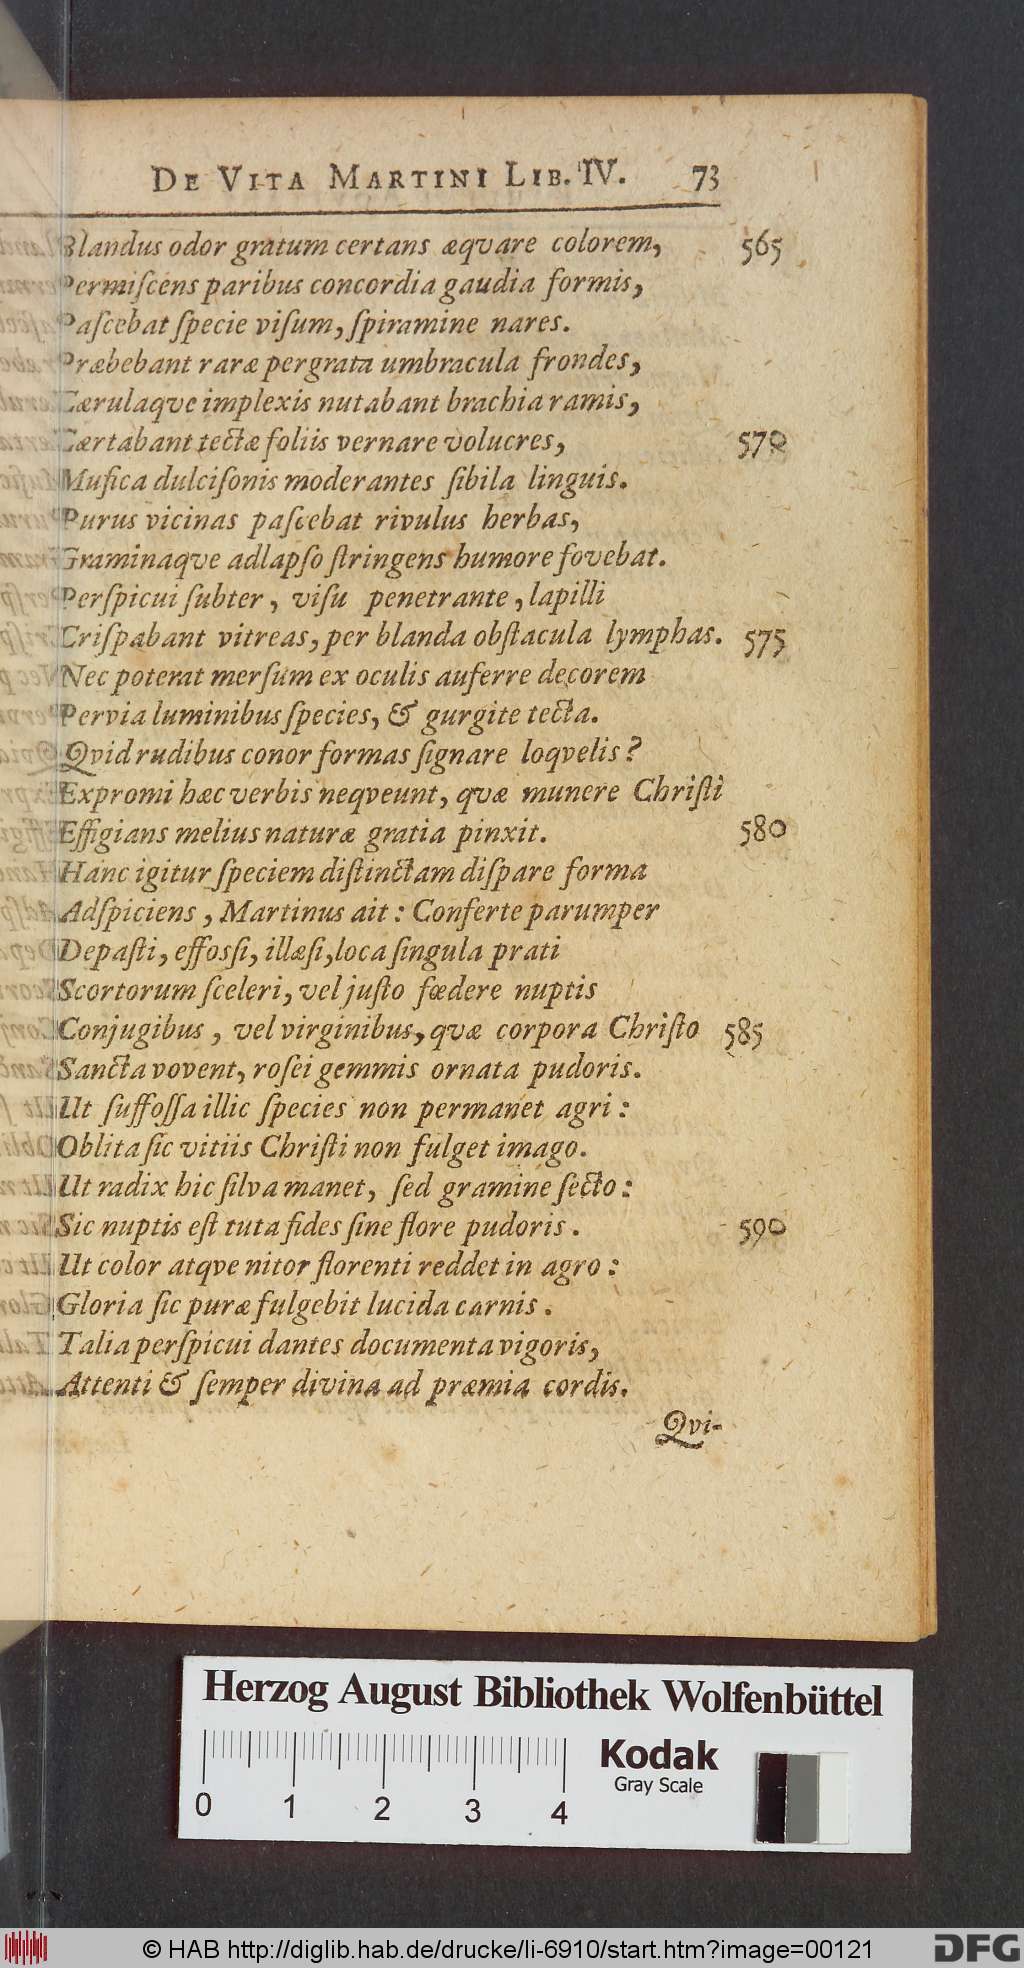 DE VITA MARTINI LIB. IV. 73
Blandus odor gratum certans æqvare colorem, 565
Permiſcens paribus concordia gaudia formis,
Paſcebat ſpecie viſum, ſpiramine nares.
Præbebant raræ pergrata umbracula frondes,
Cærulaqve implexis nutabant brachia ramis,
Cærtabant tectæ foliis vernare volucres, 570
Muſica dulciſonis moderantes ſibila linguis.
Purus vicinas paſcebat rivulus herbas,
Graminaqve adlapſo ſtringens humore fovebat.
Perſpicui ſubter, viſu penetrante, lapilli
Criſpabant vitreas, per blanda obſtacula lymphas. 575
Nec poterat merſum ex oculis auferre decorem
Pervia luminibus ſpecies, & gurgite tecta.
Qvid rudibus conor formas ſignare loqvelis?
Expromi hæc verbis neqveunt, qvæ munere Chriſti
Effigians melius naturæ gratia pinxit. 580
Hanc igitur ſpeciem diſtinctam diſpare forma
Adſpiciens, Martinus ait: Conferte parumper
Depaſti, effosſi, illæſi, loca ſingula prati
Scortorum ſceleri, vel juſto fœdere nuptis
Conjugibus, vel virginibus, qvæ corpora Chriſto 585
Sancta vovent, roſei gemmis ornata pudoris.
Ut ſuffoſſa illic ſpecies non permanet agri:
Oblita ſic vitiis Chriſti non fulget imago.
Ut radix hic ſilva manet, ſed gramine ſecto:
Sic nuptis eſt tuta fides ſine flore pudoris. 590
Ut color atqve nitor florenti reddet in agro:
Gloria ſic puræ fulgebit lucida carnis.
Talia perſpicui dantes documenta vigoris,
Attenti & ſemper divina ad præmia cordis.
Qvi-
Herzog August Bibliothek Wolfenbüttel
0 1 2 3 4
Kodak
Gray Scale
© HAB http://diglib.hab.de/drucke/li-6910/start.htm?image=00121
DFG